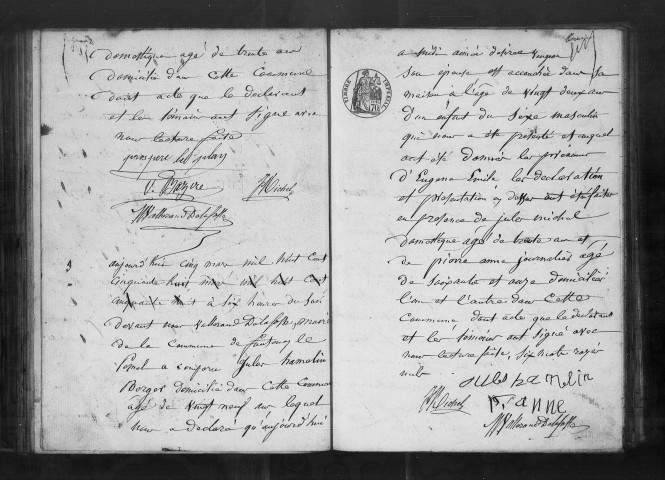 domestique agé de trente ans
domicilié dans cette Commune
dont acte que le déclarant
et les témoins ont signé avec
nous lecture faite
prospere
JMichel
MVallerand Delafosse
aujourd'hui cinq mars mil huit cent
cinquante huit mil huit cent
à six heures du soir
devant nous Vallerand Delafosse, maire
de la Commune de fontenay le
a comparu Jules hamelin
Berger domicilié dans cette Commune
agé de vingt neuf ans lequel
nous a déclaré qu'aujourd'hui
a midi aimée désirée
son épouse est accouchée dans sa
maison à l'age de vingt deux ans
d'un enfant du sexe masculin
que nous a été présenté et auquel
ont été donnés les prénoms
d'Eugène Emile les déclaration
et présentation ci dessus ont été faites
en présence de jules michel
domestique agé de trente ans et
de pierre anne journalier agé
de soixante et onze domiciliés
l'un et l'autre dans cette
Commune dont acte que le déclarant
et les témoins ont signé avec
nous lecture faite, six mots rayés
nuls
TIMBRE IMPERIAL
jules hamelin
JMichel
P. anne
MVallerand Delafosse